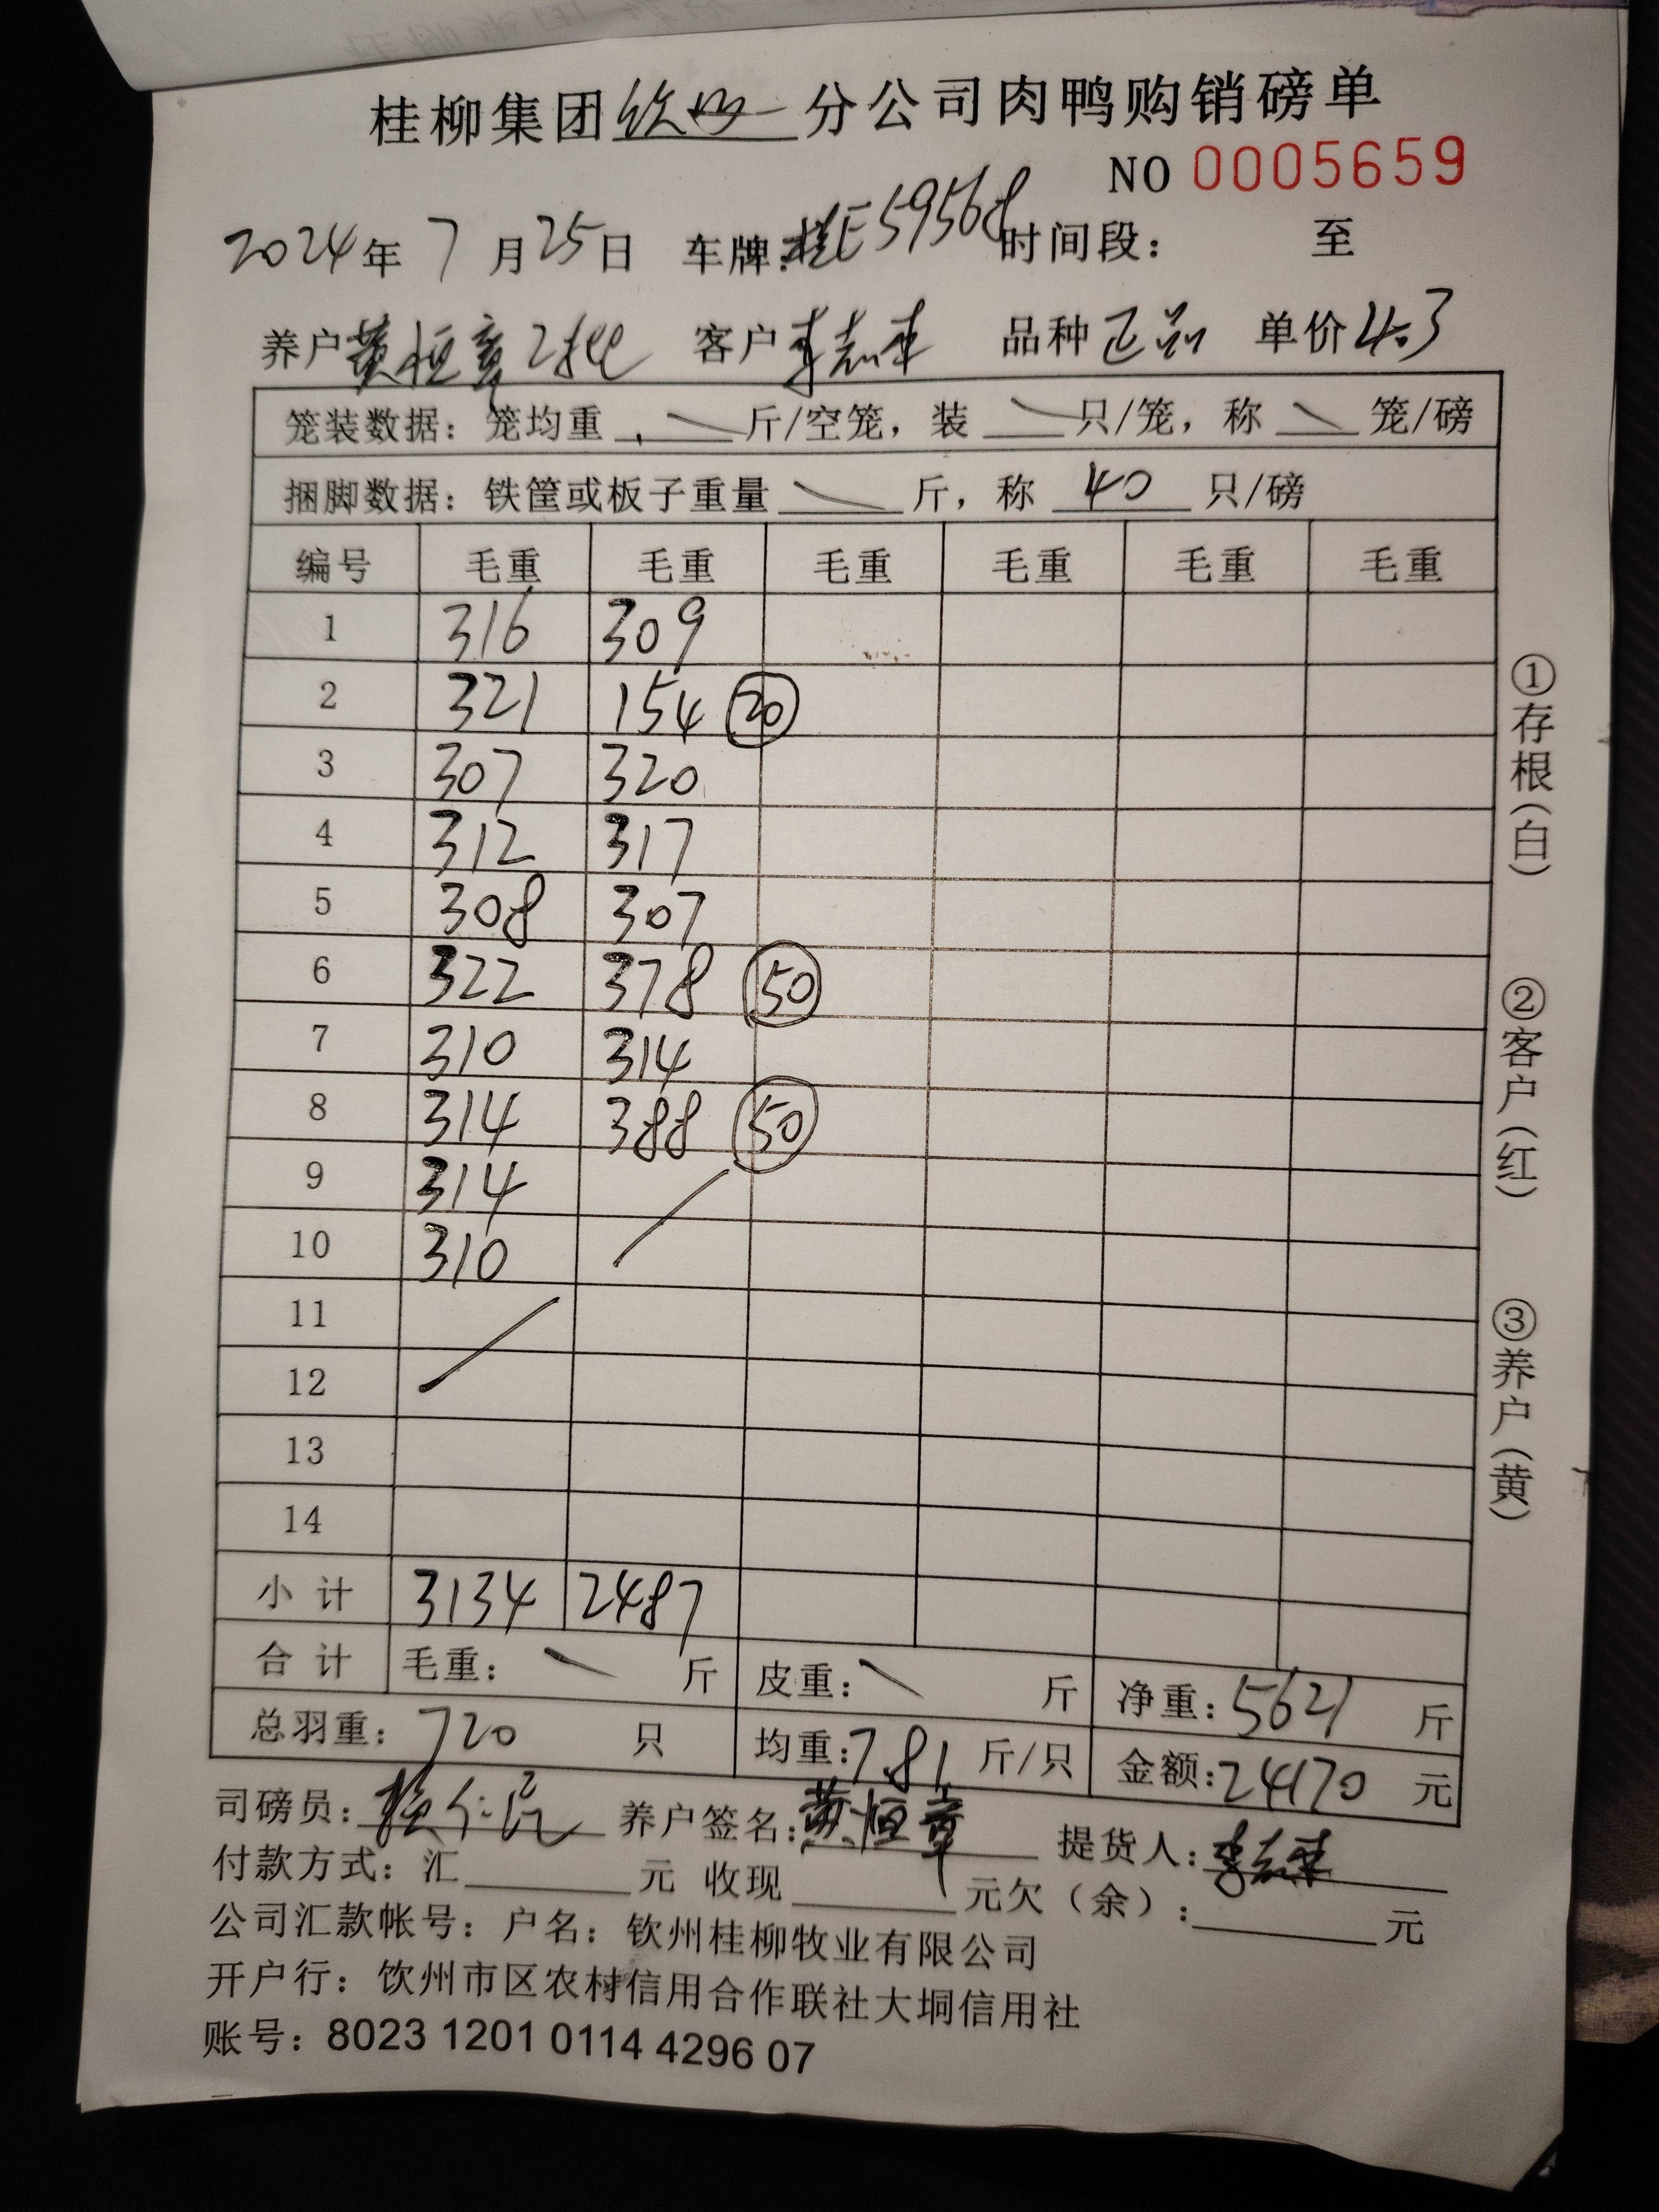 桂柳集团钦州分公司肉鸭购销磅单
NO 0005659
2024年 7 月25日 车牌:桂E59568 时间段: 至
养户黄恒章2批 客户李志东 品种正品 单价4.3
笼装数据: 笼均重 斤/空笼, 装 只/笼, 称 笼/磅
捆脚数据: 铁筐或板子重量 斤, 称 40 只/磅
编号 毛重 毛重 毛重 毛重 毛重 毛重
1 316 309
2 321 154 20
3 307 320
4 312 317
5 308 307
6 322 378 50
7 310 314
8 314 388 50
9 314
10 310
11
12
13
14
小计 3134 2487
合计 毛重: 斤 皮重: 斤 净重: 5621 斤
总羽重: 720 只 均重:7.81 斤/只 金额:24170 元
司磅员: 养户签名:黄恒章 提货人:李志东
付款方式: 汇 元 收现 元欠(余): 元
公司汇款帐号: 户名: 钦州桂柳牧业有限公司
开户行: 钦州市区农村信用合作联社大垌信用社
账号: 8023 1201 0114 4296 07
①存根(白)
②客户(红)
③养户(黄)